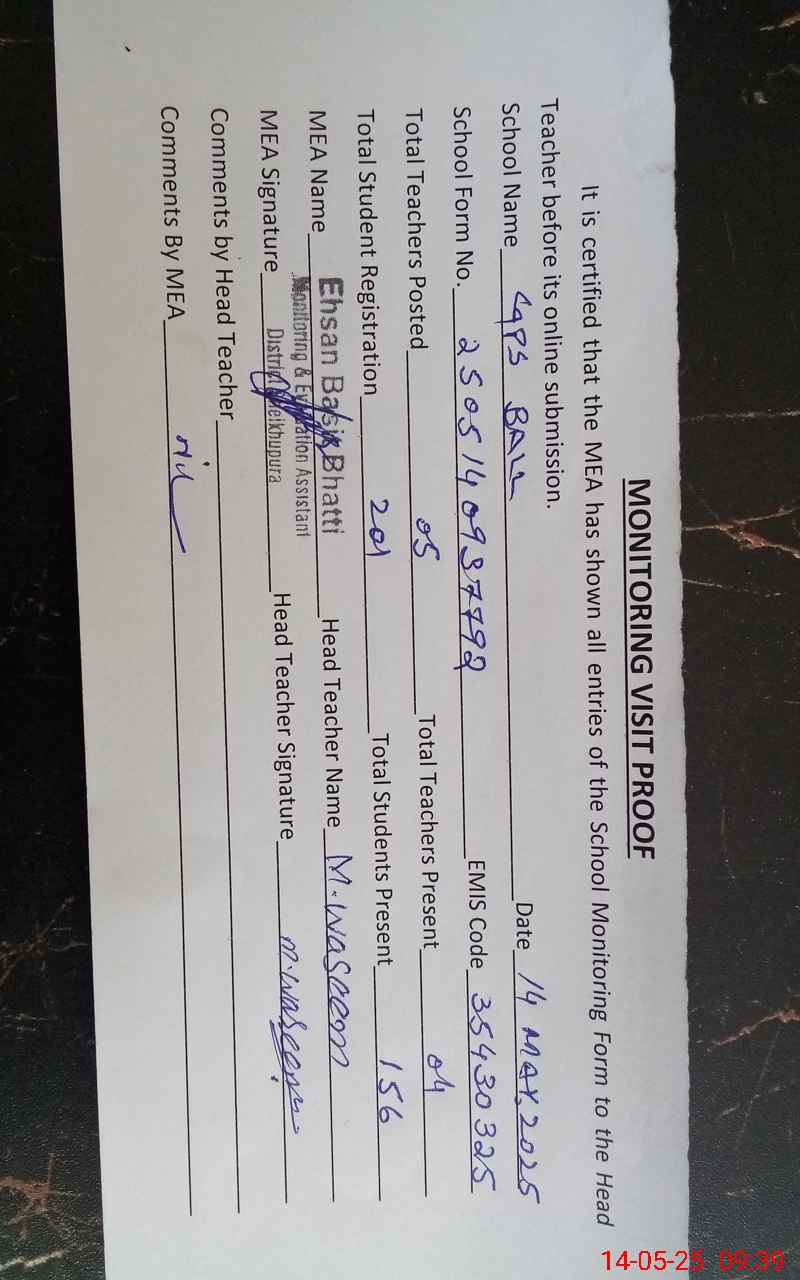 MONITORING VISIT PROOF
It is certified that the MEA has shown all entries of the School Monitoring Form to the Head
Teacher before its online submission.
School Name GPS BALL Date 14 MAY. 2025
School Form No. 25051409377792 EMIS Code 35430325
Total Teachers Posted 05 Total Teachers Present 04
Total Student Registration 201 Total Students Present 156
MEA Name Ehsan Basit Bhatti Head Teacher Name M. Waseem
Monitoring & Evaluation Assistant
District Sheikhupura
MEA Signature Head Teacher Signature M. Waseem
Comments by Head Teacher
Comments By MEA Nil
14-05-25 09:39